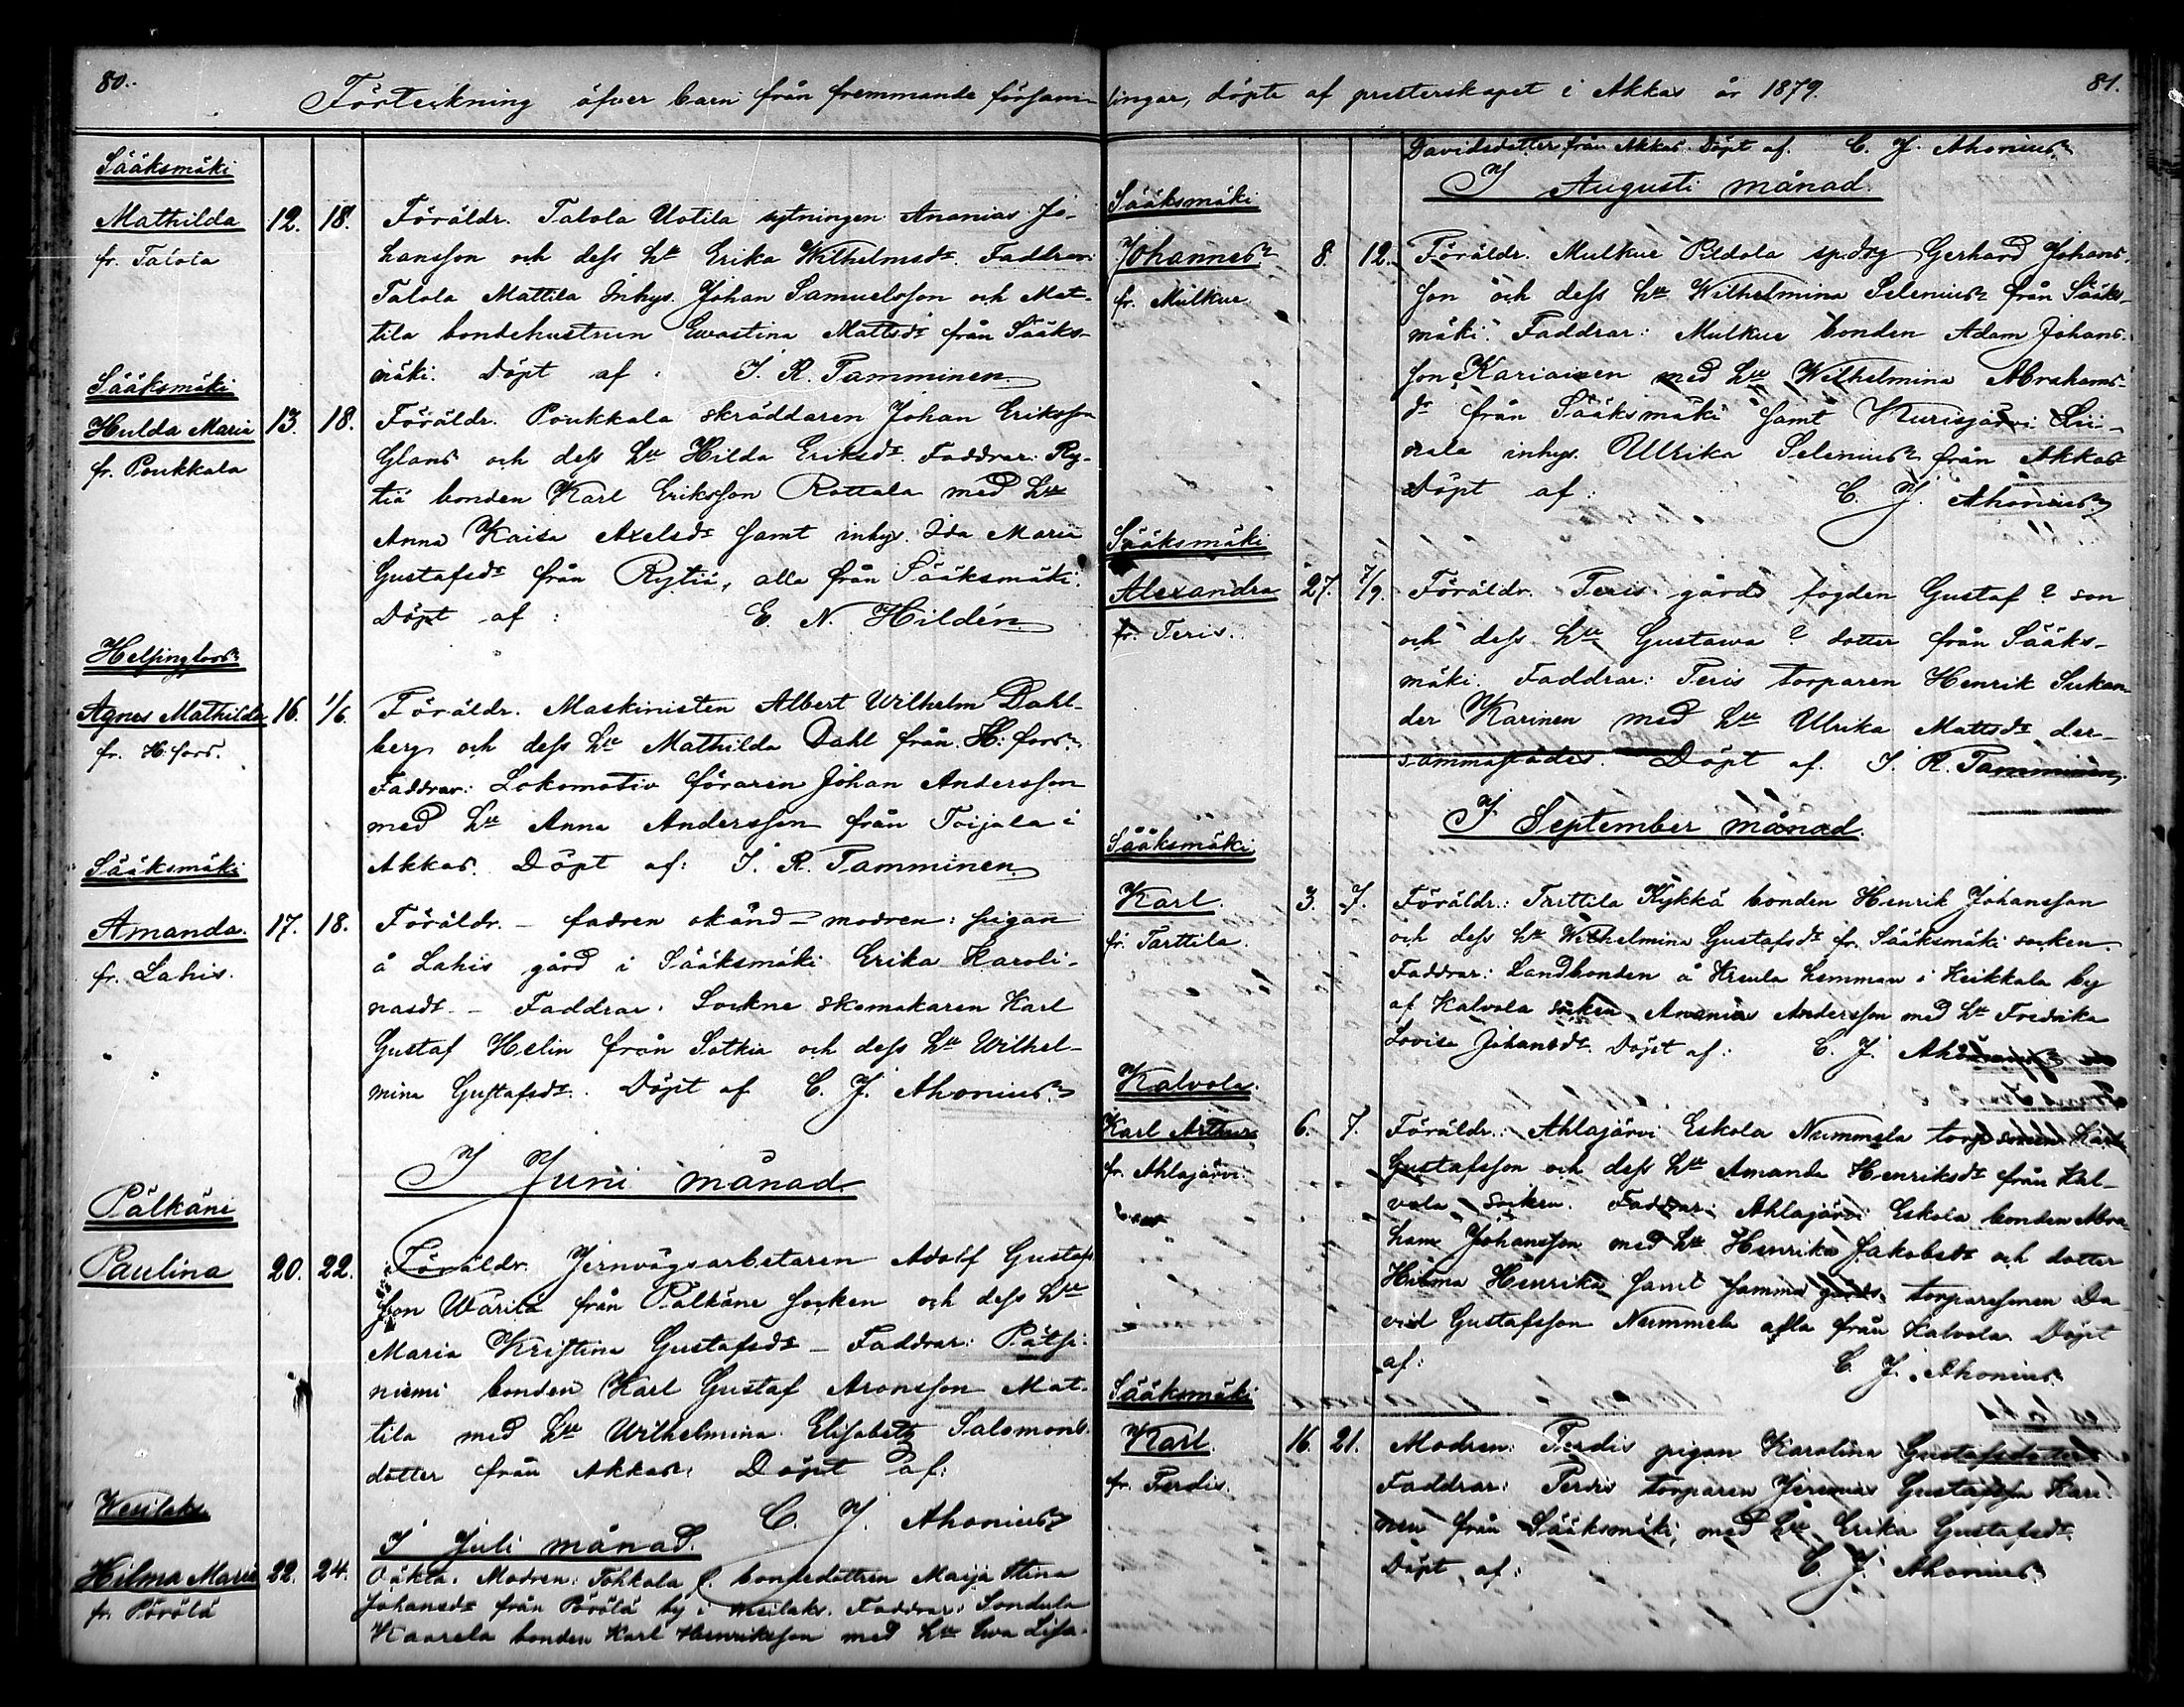 80.
Förteckning öfver barn från fremmande försam-
Sääksmäki
Mathilda 12. 18. Föräldr. Talola Uotila sytningen Ananias Jo-
fr. Talola hansson och dess hu Erika Wilhelmsdr. Faddrar:
Talola Mattila Inhys. Johan Samuelsson och Mat-
tila bondehustrun Ewastina Mattsdr från Sääks-
mäki. Döpt af: J. R. Tamminen
Sääksmäki
Hulda Maria 13. 18. Föräldr. Poukkala skräddaren Johan Eriksson
fr. Poukkala Glans och dess hu Hilda Eriksdr. Faddrar: Ry-
tiä bonden Karl Eriksson Rottala med hu
Anna Kaisa Axelsdr samt inhys. Ida Maria
Gustafsdr från Rytiä, alla från Sääksmäki.
Döpt af: E. N. Hildén
Helsingfors
Agnes Mathilda 16. 1/6. Föräldr. Maskinisten Albert Wilhelm Dahl-
fr. H:fors. berg och dess hu Mathilda Dahl från H:fors.
Faddrar: Lokomotiv föraren Johan Andersson
med hu Anna Andersson från Toijala i
Akkas. Döpt af: J. R. Tamminen
Sääksmäki
Amanda. 17. 18. Föräldr. – fadren okänd – modren: pigan
fr. Lahis. å Lahis gård i Sääksmäki Erika Karoli-
nasdr. – Faddrar: Sockne skomakaren Karl
Gustaf Helin från Sotkia och dess hu Wilhel-
mina Gustafsdr. Döpt af C. J. Ahonius
I Juni månad
Pälkäne
Paulina 20. 22. Föräldr. Jernvägsarbetaren Adolf Gustafs
son Warila från Pälkäne socken och dess hu
Maria Kristina Gustafsdr – Faddrar: Pätsi-
niemi bonden Karl Gustaf Aronsson Mat-
tila med hu Wilhelmina Elisabeth Salomons
dotter från Akkas. Döpt af:
C. J. Ahonius
I Juli månad.
Wesilaks
Hilma Maria 22. 24. Oäkta. Modren: Tohkala bondedottren Maija Stina
fr. Pörölä Johansdr från Pörölä by i Wesilaks. Faddrar: Sondula
Kaarela bonden Karl Henriksson med hu Ewa Lisa
81.
lingar, döpte af presterskapet i Akkas år 1879.
Davidsdotter från Akkas. Döpt af. C. J. Ahonius
I Augusti månad.
Sääksmäki
Johannes 8. 12. Föräldr. Mulkue Pildola Gerhard Johans-
fr. Mulkue. son och dess hu Wilhelmina Selenius från Sääks-
mäki. Faddrar: Mulkue bonden Adam Johans-
son Kariainen med hu Wilhelmina Abrahams-
dr från Sääksmäki samt Kurisjärvi Lii-
nala inhys. Ullrika Selenius från Akkas
Döpt af: C. J. Ahonius
Sääksmäki
Alexandra 27. 7/9. Föräldr. Teris gårds fogden Gustaf ? son
fr. Teris. och dess hu Gustawa ? dotter från Sääks-
mäki. Faddrar: Teris torparen Henrik Sukan-
der Karinen med hu Ulrika Mattsdr, der-
sammastädes. Döpt af. J. R. Tamminen
I September månad.
Sääksmäki
Karl. 3. 7. Föräldr.: Tarttila Kykkä bonden Henrik Johansson
fr. Tarttila. och dess hu Wilhelmina Gustafsdr fr. Sääksmäki socken.
Faddrar: Landbonden å hemman i Keikkala by
af Kalvola socken Ananias Andersson med hu Fredrika
Lovisa Johansdr. Döpt af: C. J. Ahonius
Kalvola.
Karl Arthur 6. 7. Föräldr.: Ahlajärvi Eskola Nummela torp Karl
fr. Ahlajärvi Gustafsson och dess hu Amanda Henriksdr från Kal-
vola socken. Faddrar: Ahlajärvi Eskola bonden Abra
ham Johansson med hu Henrika Jakobsdr och dotter
Hilma Henrika samt samma gårds torparesonen Da
vid Gustafsson Nummela alla från Kalvola. Döpt
af: C. J. Ahonius
Sääksmäki
Karl. 16. 21. Modren: Terdis pigan Karolina Gustafsdotter
fr. Terdis. Faddrar: Terdis torparen Jeremias Gustafsson Kari-
nen från Sääksmäki, med hu Erika Gustafsdr.
Döpt af: C. J. Ahonius